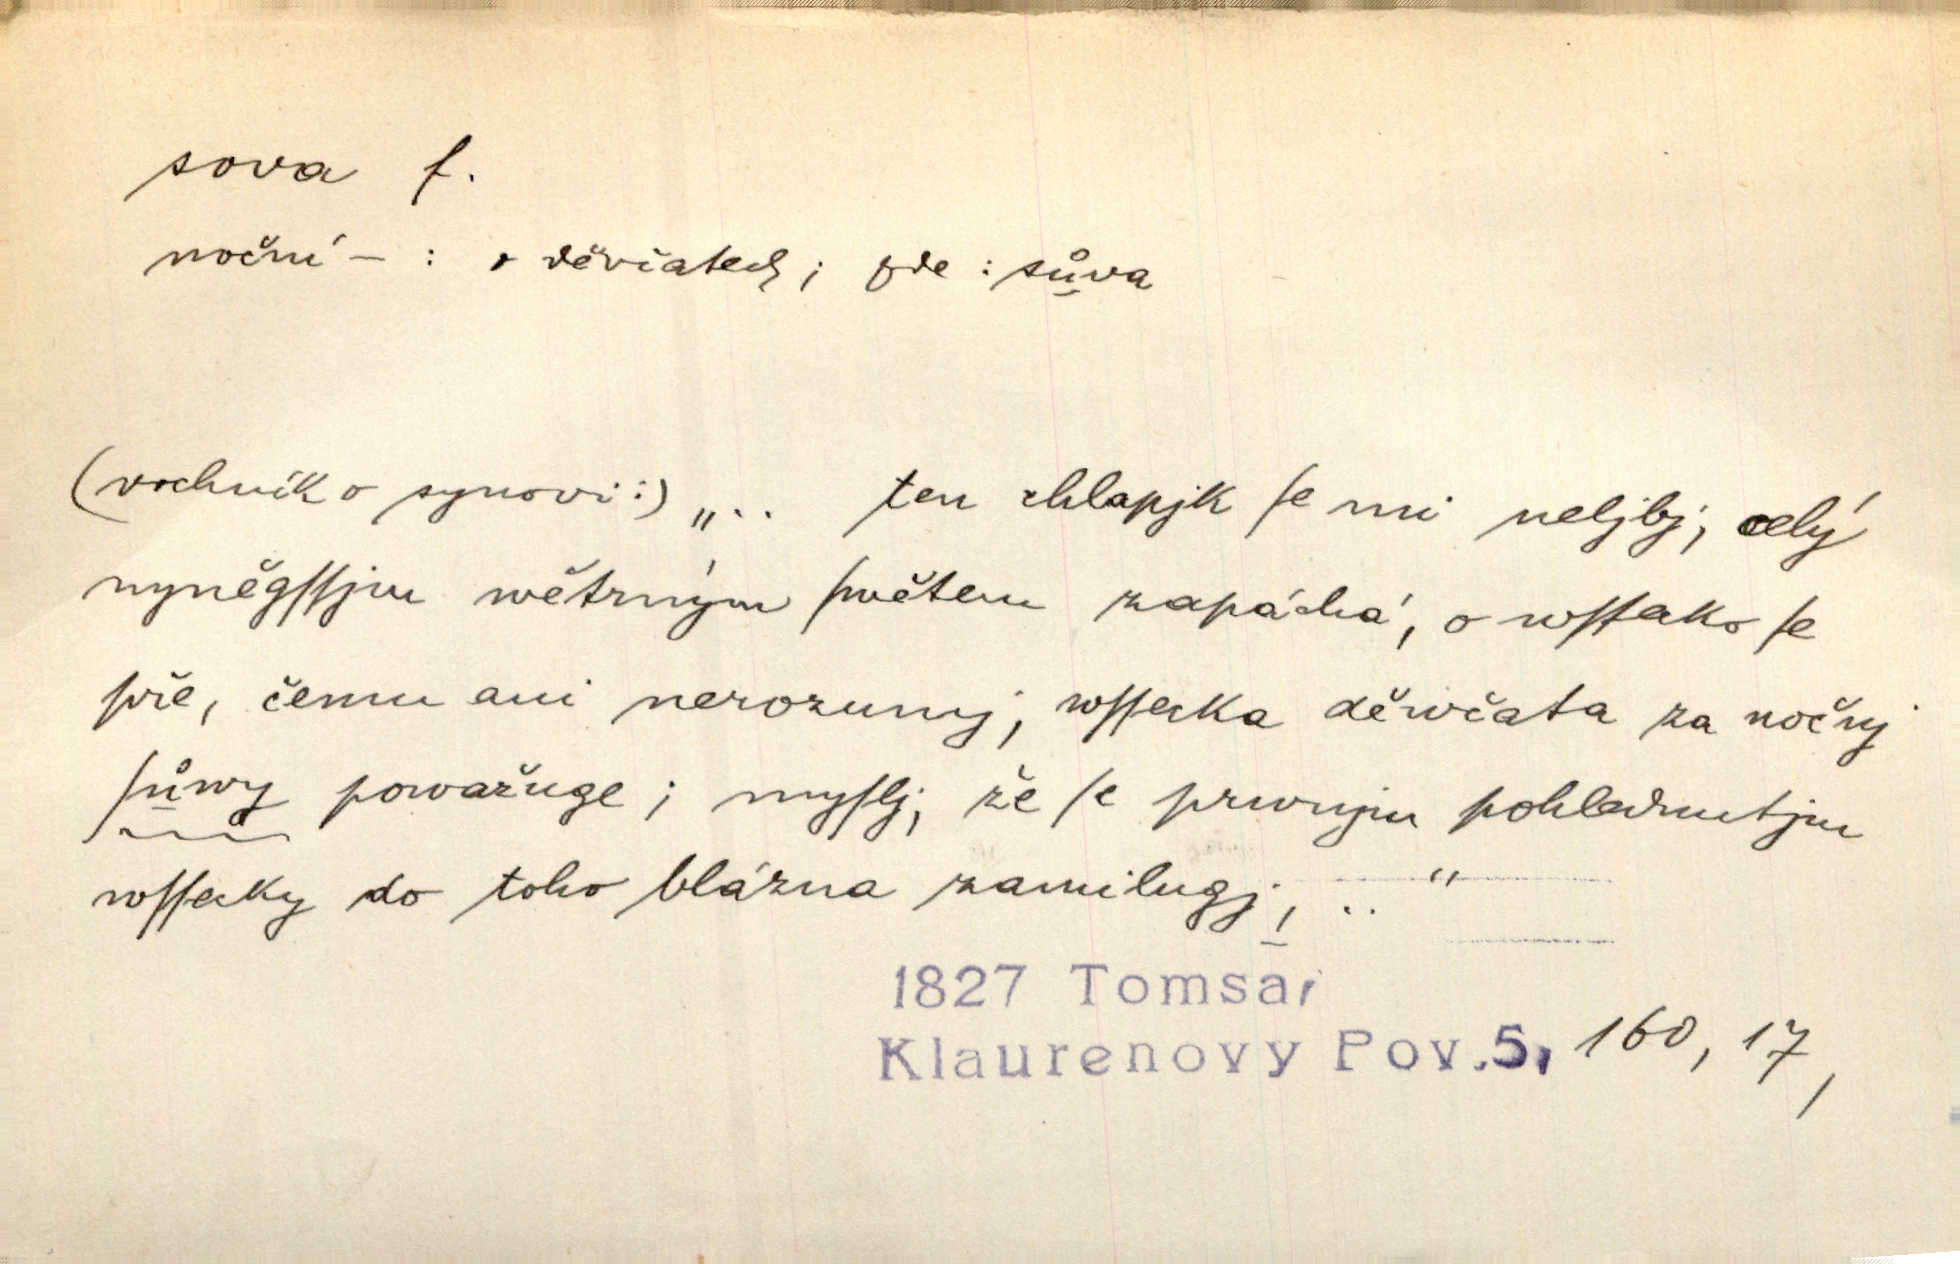 sova f.
noční – : o děvčatech; zde : sůva
(rochník o synovi:) „.. ten chlapjk ſe mi neljbj, celý
nyněgſſjm wětrným ſwětem zapáchá, o wſſecko ſe
pře, čemu ani nerozumj, wſſecka děwčata za nočnj
ſůwy powažuge; myſlj, že ſe prwnjm pohlednutjm
wſſecky do toho blázna zamilugj, .. “
1827 Tomsa,
Klaurenovy Pov.5, 160, 17,